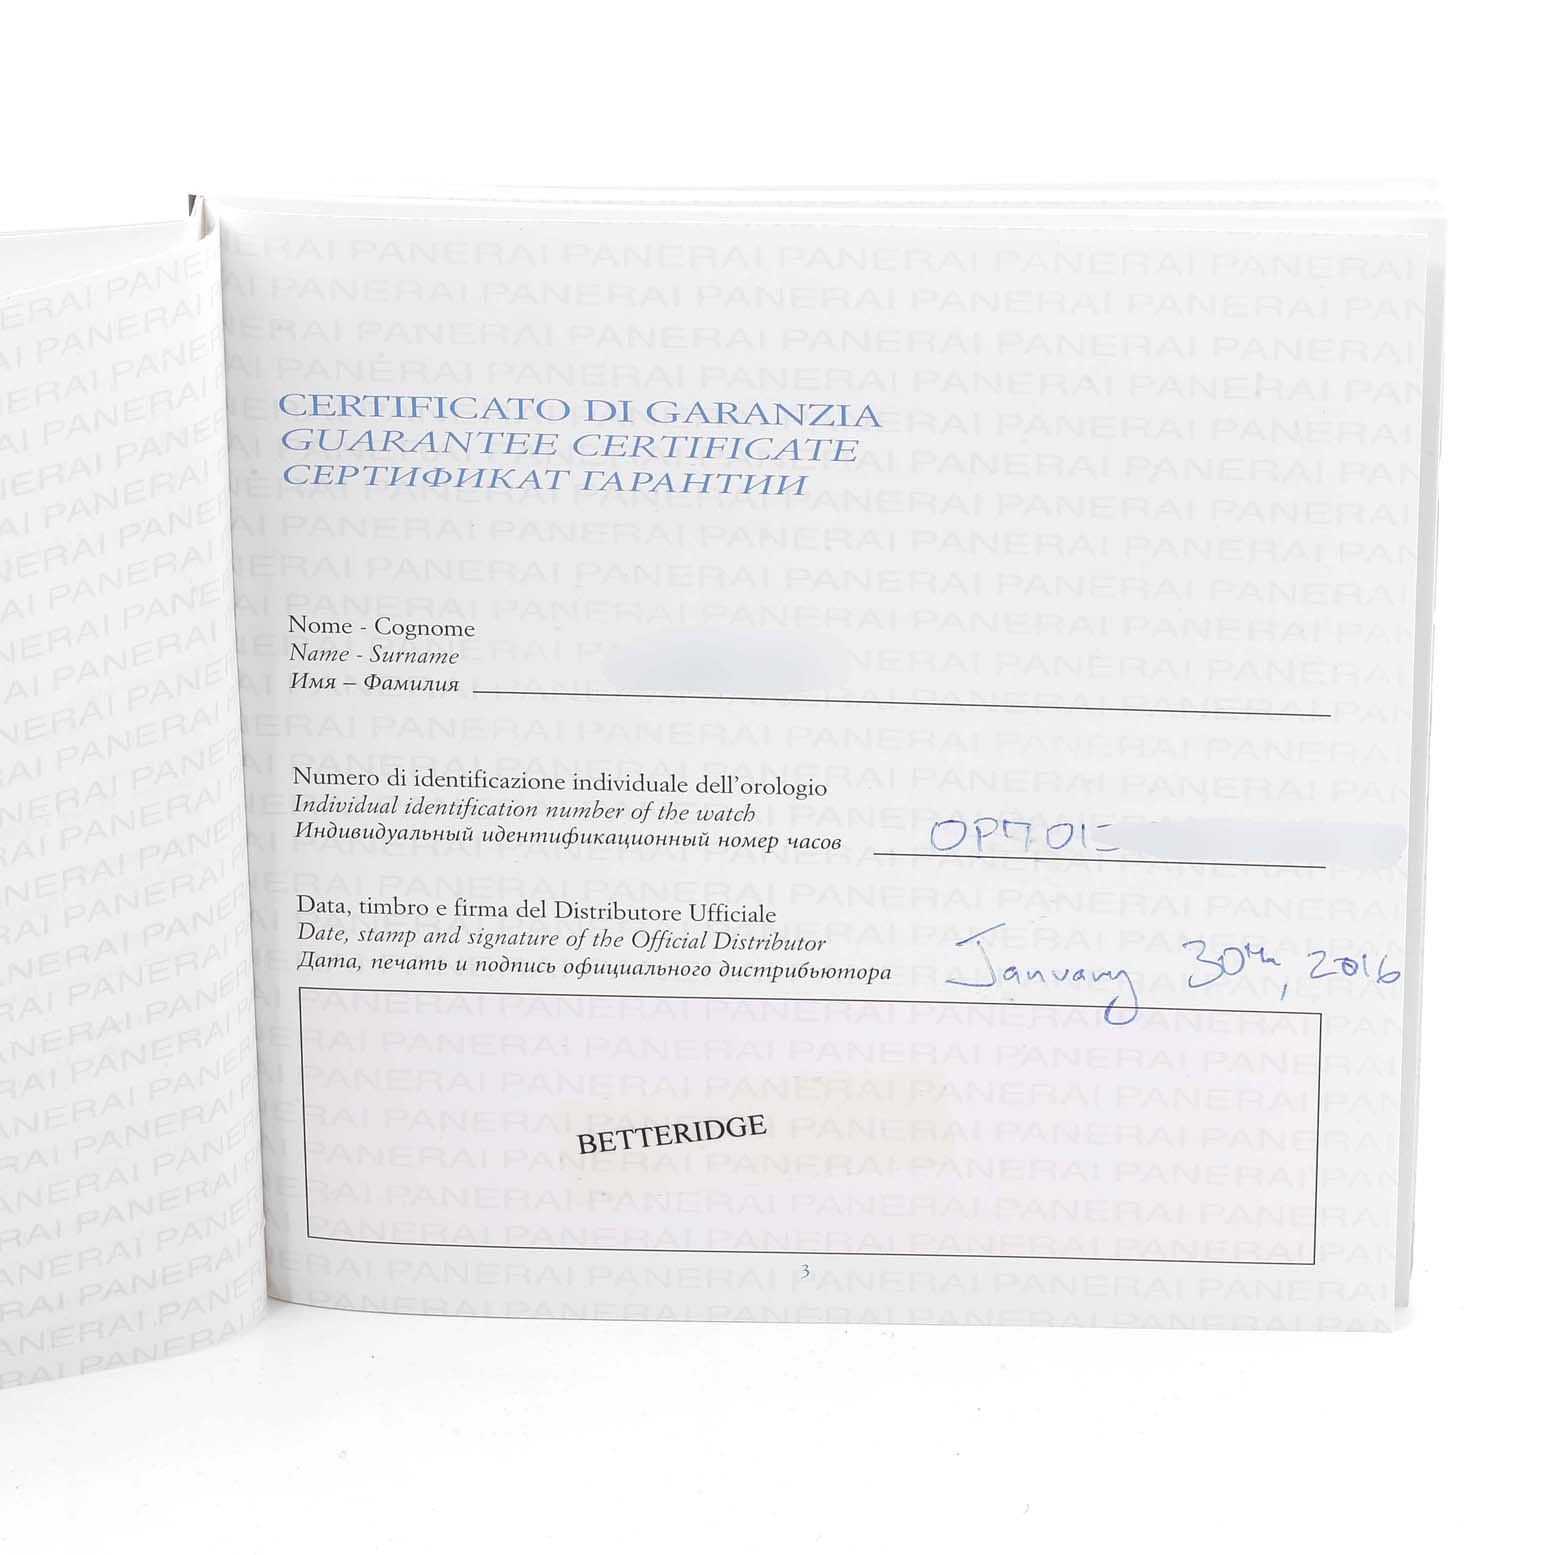 CERTIFICATO DI GARANZIA
GUARANTEE CERTIFICATE
СЕРТИФИКАТ ГАРАНТИИ
Nome - Cognome
Name - Surname
Имя – Фамилия
Numero di identificazione individuale dell'orologio
Individual identification number of the watch
Индивидуальный идентификационный номер часов
Data, timbro e firma del Distributore Ufficiale
Date, stamp and signature of the Official Distributor
Дата, печать и подпись официального дистрибьютора
January 30th, 2016
BETTERIDGE
3